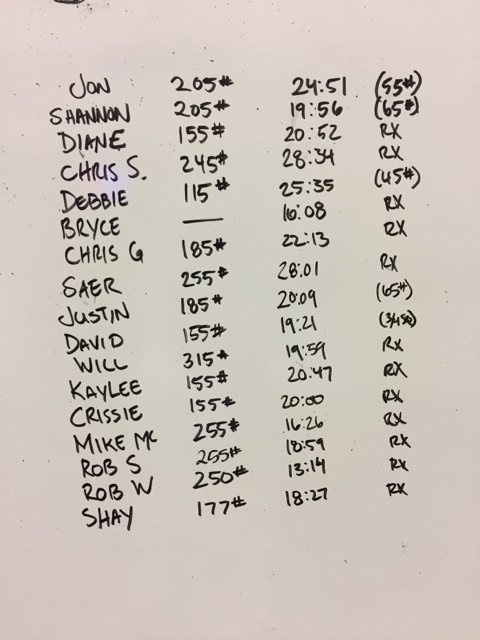 JON 205# 24:51 (55#)
SHANNON 205# 19:56 (65#)
DIANE 155# 20:52 RX
CHRIS S. 245# 28:34 RX
DEBBIE 115# 25:35 (45#)
BRYCE — 16:08 RX
CHRIS G 185# 22:13 RX
SAER 255# 28:01 RX
JUSTIN 185# 20:09 (65#)
DAVID 155# 19:21
WILL 315# 19:59 RX
KAYLEE 155# 20:47 RX
CRISSIE 155# 20:00 RX
MIKE MC 255# 16:26 RX
ROB S 255# 18:59 RX
ROB W 250# 13:14 RX
SHAY 177# 18:27 RX